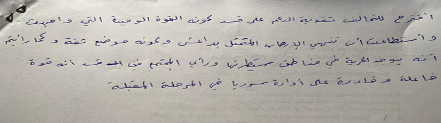 اقترح للتحالف تقوية الدعم على قسد كونه القوة الوحيدة التي واجهت
واستطاعت أن تنهي الإرهاب المتمثل بداعش وكونه موضع ثقة
أنه يوجد الحرية في مناطق سيطرتها ورأي المجتمع في قسد أنه قوة
فاعلة وقادرة على إدارة سوريا في المرحلة المقبلة